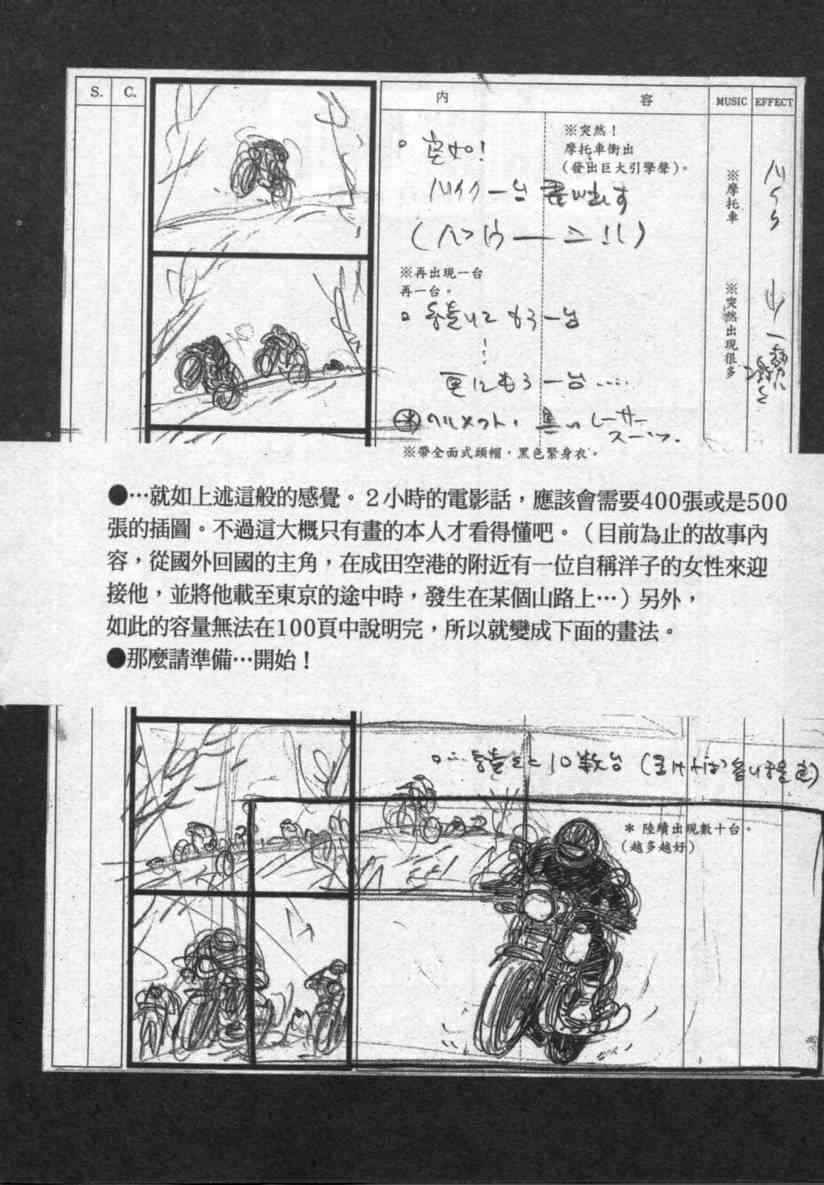 S. C. 内 容 MUSIC EFFECT
※突然！
摩托車衝出
(發出巨大引擎聲)。
突如！
バイク一台
※摩托車
バイク
※再出現一台
再一台。
続いてもう一台
※突然出現很多
更にもう一台‥‥
※帶全面式頭帽，黑色緊身衣。
●…就如上述這般的感覺。2小時的電影話，應該會需要400張或是500
張的插圖。不過這大概只有畫的本人才看得懂吧。（目前為止的故事內
容，從國外回國的主角，在成田空港的附近有一位自稱洋子的女性來迎
接他，並將他載至東京的途中時，發生在某個山路上…）另外，
如此的容量無法在100頁中說明完，所以就變成下面的畫法。
●那麼請準備…開始！
10数台
* 陸續出現數十台。
(越多越好)